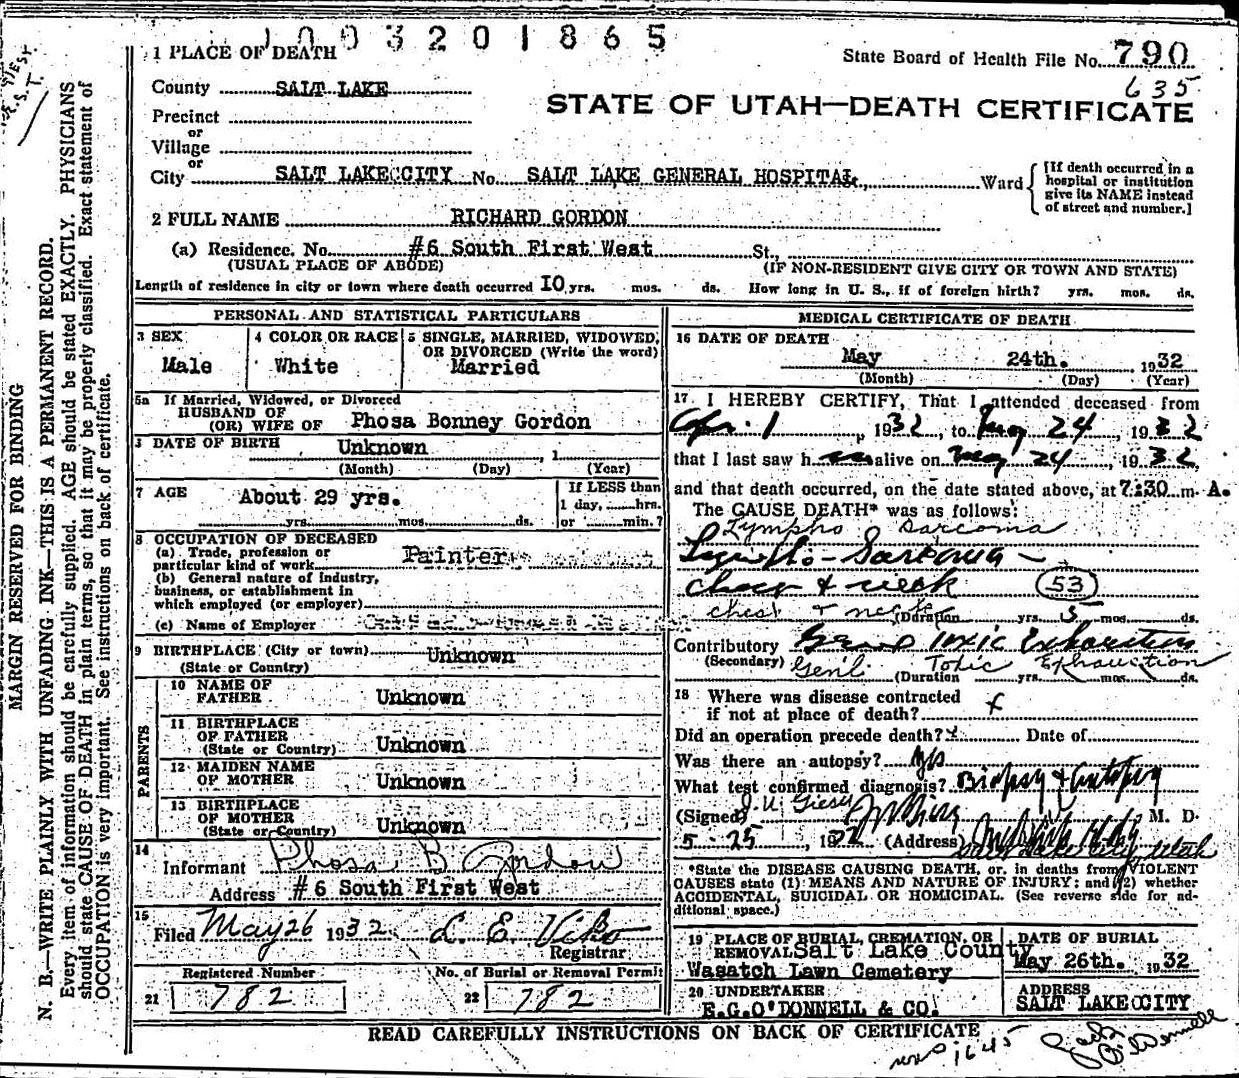 1003201865
1 PLACE OF DEATH
State Board of Health File No. 790
635
County SALT LAKE
STATE OF UTAH—DEATH CERTIFICATE
Precinct
or
Village
or
City SALT LAKE CITY No. SALT LAKE GENERAL HOSPITAL, Ward
[If death occurred in a
hospital or institution
give its NAME instead
of street and number.]
2 FULL NAME RICHARD GORDON
(a) Residence. No. #6 South First West St.,
(USUAL PLACE OF ABODE) (IF NON-RESIDENT GIVE CITY OR TOWN AND STATE)
Length of residence in city or town where death occurred 10 yrs. mos. ds. How long in U. S., if of foreign birth? yrs. mos. ds.
PERSONAL AND STATISTICAL PARTICULARS
3 SEX
Male
4 COLOR OR RACE
White
5 SINGLE, MARRIED, WIDOWED,
OR DIVORCED (Write the word)
Married
5a If Married, Widowed, or Divorced
HUSBAND OF
(OR) WIFE OF Phosa Bonney Gordon
DATE OF BIRTH Unknown, 1
(Month) (Day) (Year)
7 AGE About 29 yrs.
yrs. mos. ds.
If LESS than
1 day, hrs.
or min.?
8 OCCUPATION OF DECEASED
(a) Trade, profession or
particular kind of work Painter
(b) General nature of industry,
business, or establishment in
which employed (or employer)
(c) Name of Employer
9 BIRTHPLACE (City or town) Unknown
(State or Country)
PARENTS
10 NAME OF
FATHER Unknown
11 BIRTHPLACE
OF FATHER
(State or Country) Unknown
12 MAIDEN NAME
OF MOTHER Unknown
13 BIRTHPLACE
OF MOTHER
(State or Country) Unknown
14
Informant Phosa B Gordon
Address #6 South First West
15
Filed May 26 1932 L. E. Viko
Registrar
Registered Number
21 782
No. of Burial or Removal Permit
22 782
MEDICAL CERTIFICATE OF DEATH
16 DATE OF DEATH
May 24th. 1932
(Month) (Day) (Year)
17 I HEREBY CERTIFY, That I attended deceased from
Apr. 1, 1932, to May 24, 1932
that I last saw h alive on May 24, 1932,
and that death occurred, on the date stated above, at 7:30 m A.
The CAUSE DEATH* was as follows:
Lympho Sarcoma
Lympho-Sarcoma
chest & neck 53
chest & neck (Duration yrs. 5 mos. ds.
Contributory Genl Toxic Exhaustion
(Secondary) Gen'l Toxic Exhaustion
(Duration yrs. mos. ds.
18 Where was disease contracted
if not at place of death?
Did an operation precede death? Date of
Was there an autopsy? yes
What test confirmed diagnosis? Biopsy & Autopsy
(Signed) M. D.
5-25, 1932 (Address)
Salt Lake City, Utah
*State the DISEASE CAUSING DEATH, or, in deaths from VIOLENT
CAUSES state (1) MEANS AND NATURE OF INJURY; and (2) whether
ACCIDENTAL, SUICIDAL OR HOMICIDAL. (See reverse side for ad-
ditional space.)
19 PLACE OF BURIAL, CREMATION, OR
REMOVAL Salt Lake County
Wasatch Lawn Cemetery
DATE OF BURIAL
May 26th. 1932
20 UNDERTAKER
E.G.O'DONNELL & CO.
ADDRESS
SALT LAKE CITY
READ CAREFULLY INSTRUCTIONS ON BACK OF CERTIFICATE
1645
MARGIN RESERVED FOR BINDING
N. B.—WRITE PLAINLY WITH UNFADING INK—THIS IS A PERMANENT RECORD.
Every item of information should be carefully supplied. AGE should be stated EXACTLY. PHYSICIANS
should state CAUSE OF DEATH in plain terms, so that it may be properly classified. Exact statement of
OCCUPATION is very important. See instructions on back of certificate.